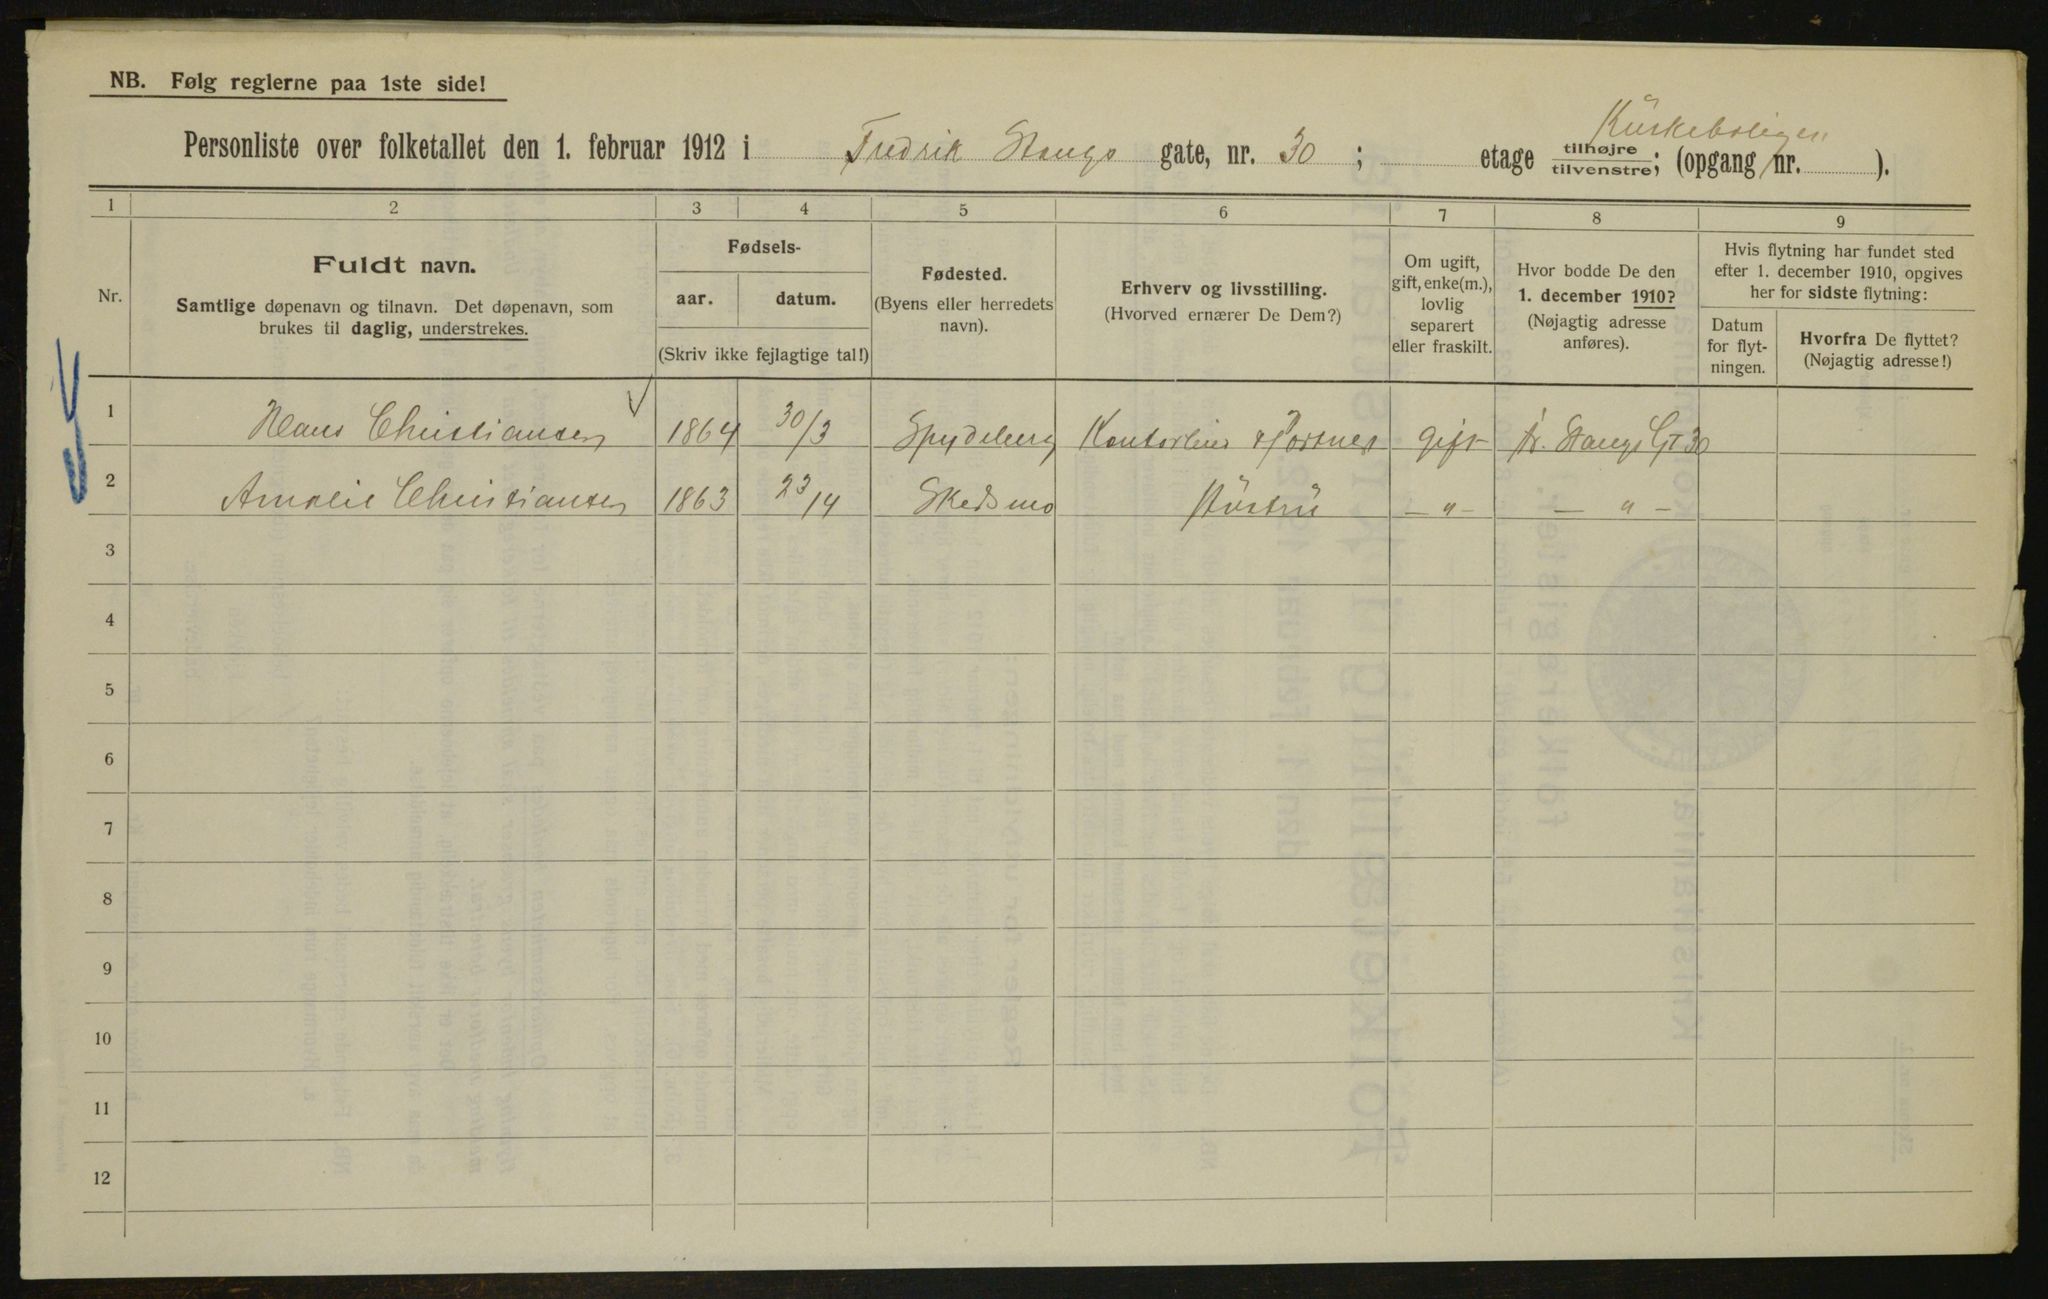 NB. Følg reglerne paa 1ste side!
Kuskeboligen
Personliste over folketallet den 1. februar 1912 i Fredrik Stangs gate, nr. 30 ; etage tilhøjre tilvenstre; (opgang nr. ).
1 2 3 4 5 6 7 8 9
Nr.
Fuldt navn.
Samtlige døpenavn og tilnavn. Det døpenavn, som
brukes til daglig, understrekes.
Fødsels-
aar. datum.
(Skriv ikke fejlagtige tal!)
Fødested.
(Byens eller herredets
navn).
Erhverv og livsstilling.
(Hvorved ernærer De Dem?)
Om ugift,
gift, enke(m.),
lovlig
separert
eller fraskilt.
Hvor bodde De den
1. december 1910?
(Nøjagtig adresse
anføres).
Hvis flytning har fundet sted
efter 1. december 1910, opgives
her for sidste flytning:
Datum
for flyt-
ningen.
Hvorfra De flyttet?
(Nøjagtig adresse!)
1 Hans Christiansen 1864 30/3 Spydeberg gift Fr. Stangs Gt 30
2 Amalie Christiansen 1863 23/4 Skedsmo Hustru — " — — " —
3
4
5
6
7
8
9
10
11
12